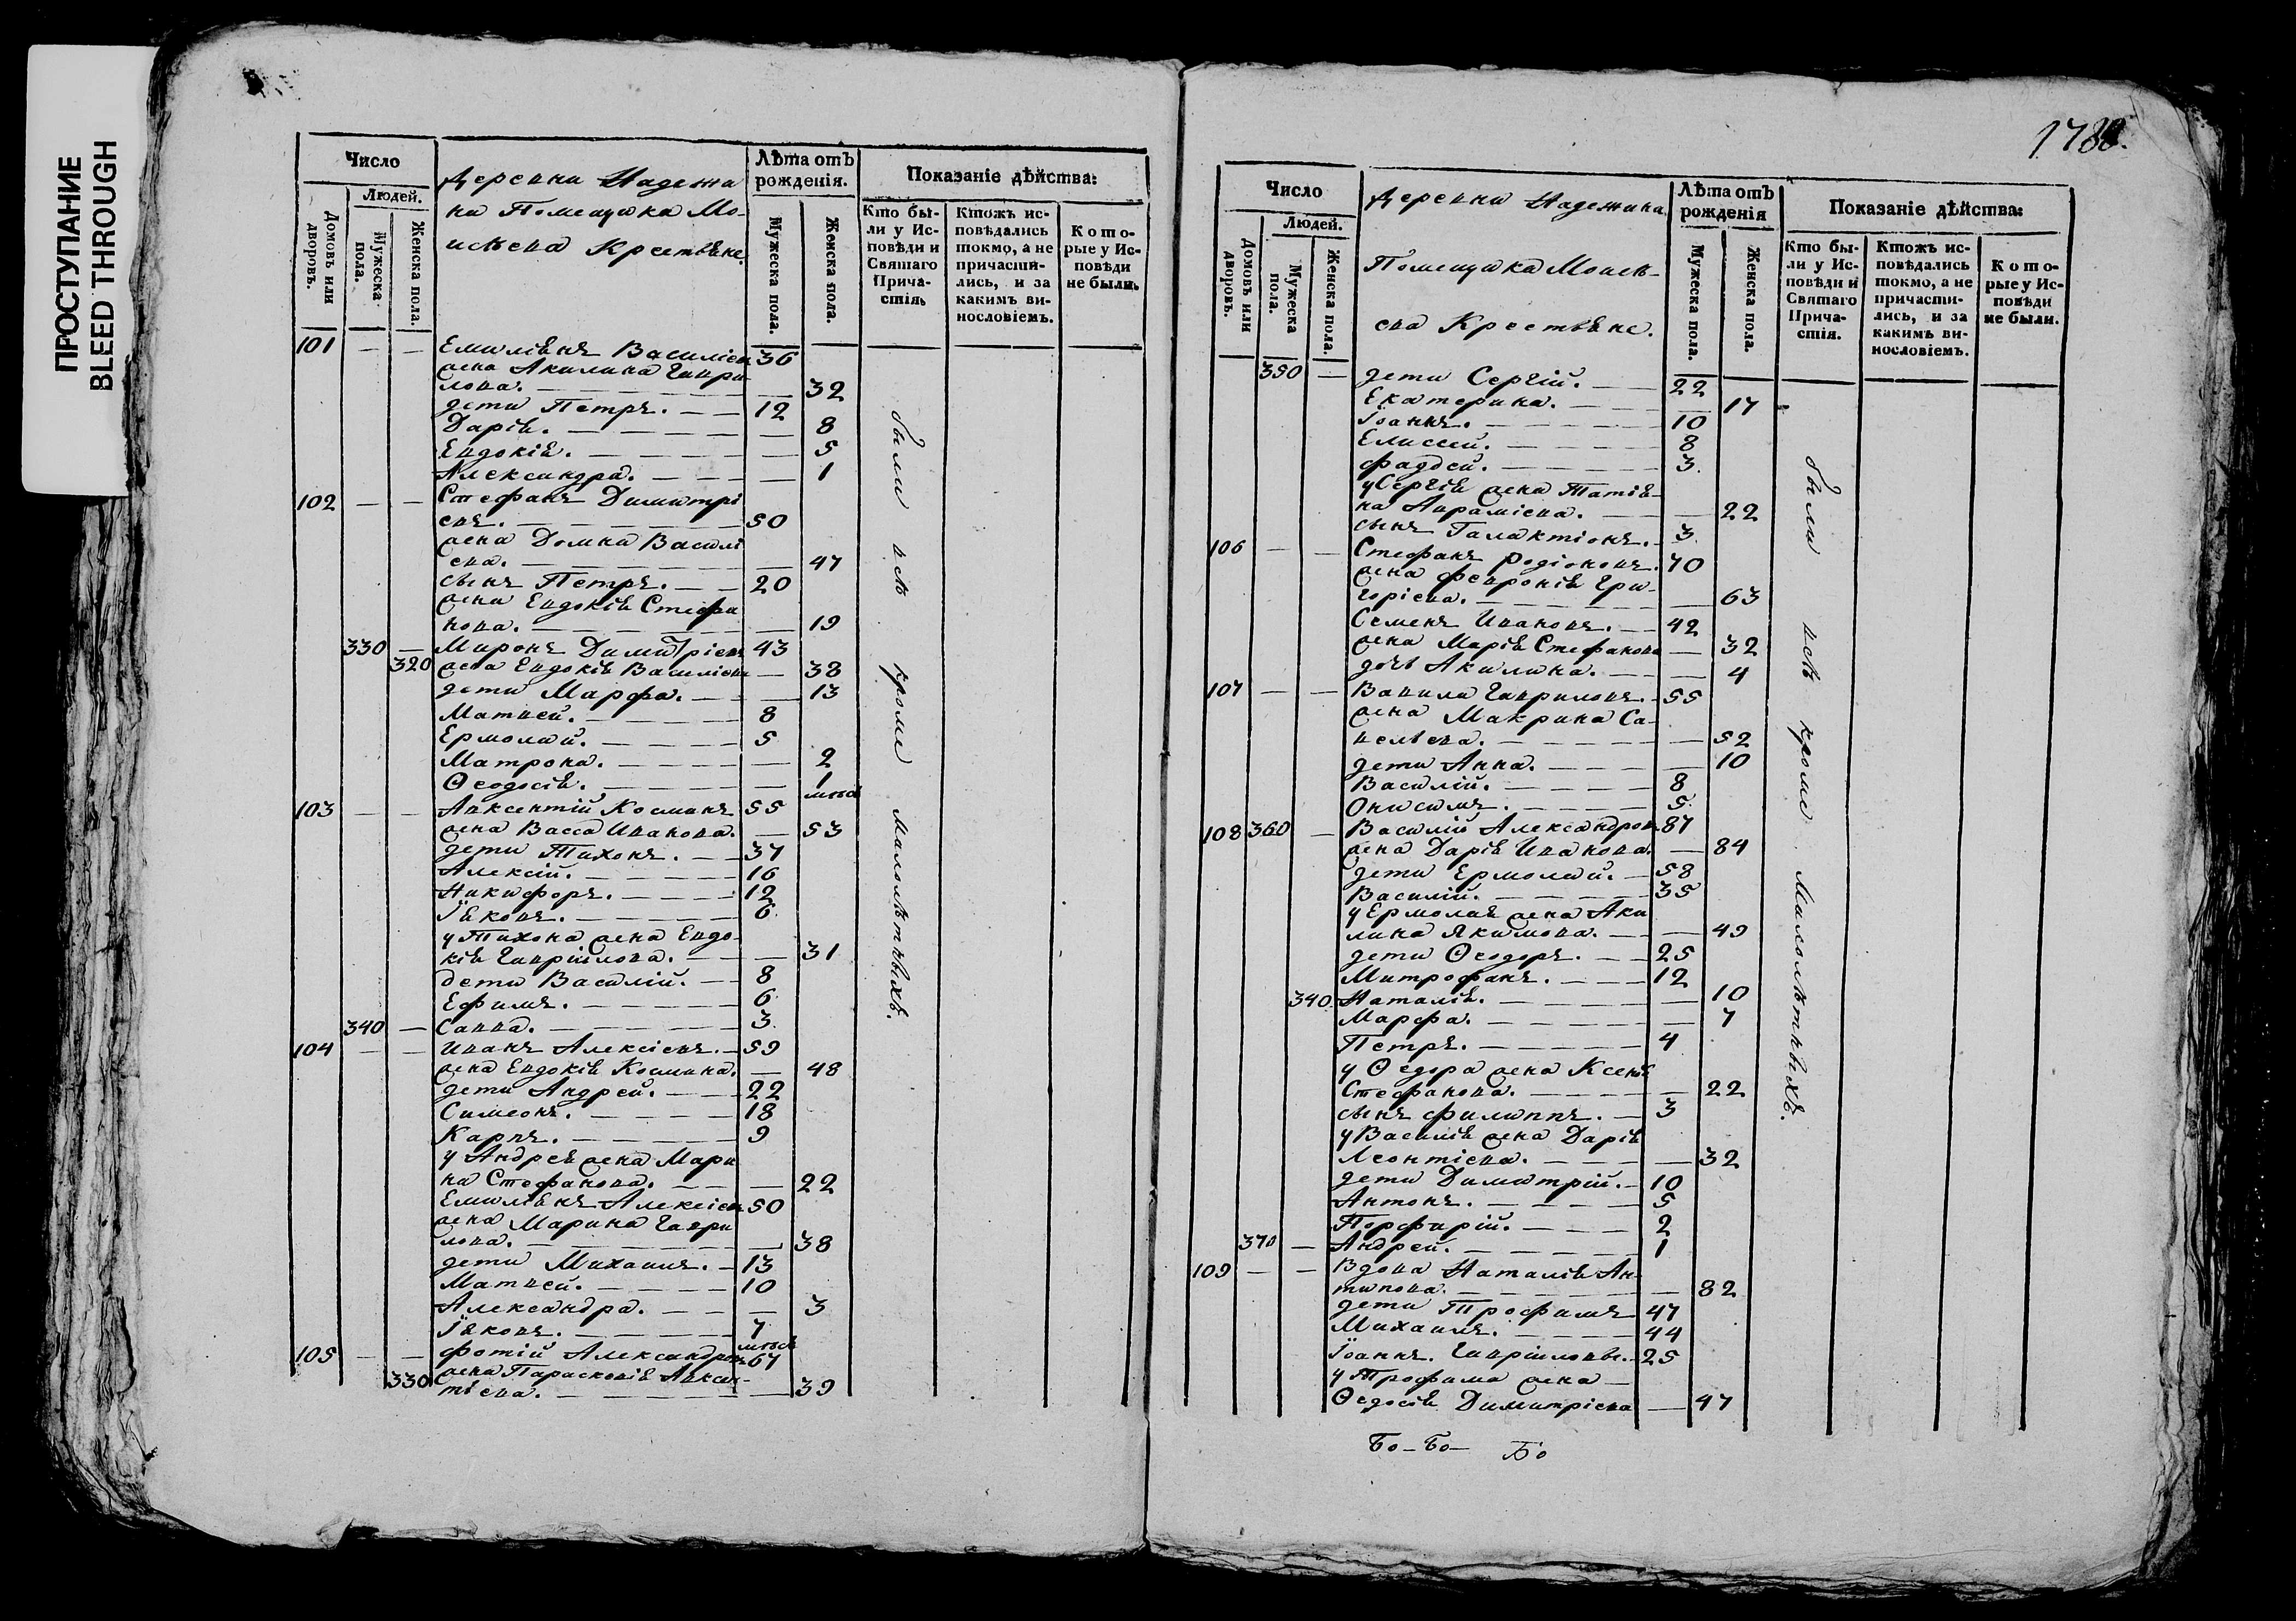 ПРОСТУПАНИЕ
BLEED THROUGH
Число
Людей.
Домовъ или дворовъ.
Мужеска пола.
Женска пола.
Деревни Надежи
ни Помещика Мо-
исѣева Крестьяне.
Лѣта отъ рожденія.
Мужеска пола.
Женска пола.
Показаніе дѣйства:
Кто бы-
ли у Ис-
повѣди и
Святаго
Прича-
стія.
Ктожъ ис-
повѣдались
токмо, а не
причасти-
лись, и за
какимъ ви-
нословіемъ.
Кото-
рые у Ис-
повѣди
не были.
101 — — Емиліянъ Василіевъ 36
жена Акилина Гаври
лова. — 32
дети Петръ. — 12
Дарія. — 8
Евдокія. — 5
Александра. — 1
102 — — Стефанъ Димитрі
евъ. — 50
жена Домна Василі
ева. — 47
сынъ Петръ. — 20
жена Евдокія Стефа
нова. — 19
330 — Миронъ Димитріевъ 43
320 жена Евдокія Василіева — 38
дети Марфа. — 13
Матвей. — 8
Ермолай. — 5
Матрона. — 2
Ѳеодосія. — 1
103 — — Авксентій Косминъ 55
жена Васса Иванова. — 53
дети Тихонъ. — 37
Алексій. — 16
Никифоръ. — 12
Іяковъ. — 6
у Тихона жена Евдо-
кія Гавріилова. — 31
дети Василій. — 8
Ефимъ. — 6
340 — Савва. — 3
104 — — Иванъ Алексіевъ. — 59
жена Евдокія Космина. — 48
дети Андрей. — 22
Симеонъ. — 18
Карпъ. — 9
у Андрея жена Мари
на Стефанова. — 22
Емиліянъ Алексіевъ 50
жена Марина Гаври
лова. — 38
дети Михаилъ. — 13
Матвей. — 10
Александра. — 3
Іяковъ. — 7
105 — — Фотій Александровъ 67
330 жена Парасковія Авксен-
тіева. — 39
были всѣ кроме малолѣтныхъ.
1788.
Число
Людей.
Домовъ или дворовъ.
Мужеска пола.
Женска пола.
Деревни Надежина
Помещика Моисѣ-
ева Крестьяне.
Лѣта отъ рожденія
Мужеска пола.
Женска пола.
Показаніе дѣйства:
Кто бы-
ли у Ис-
повѣди и
Святаго
Прича-
стія.
Ктожъ ис-
повѣдались
токмо, а не
причасти-
лись, и за
какимъ ви-
нословіемъ.
Кото-
рые у Ис-
повѣди
не были.
350 — дети Сергій. — 22
Екатерина. — 17
Іоаннъ. — 10
Елиссей. — 8
Фаддей. — 3
у Сергія жена Татія-
на Авраміева. — 22
сынъ Галактіонъ. — 3
106 — — Стефанъ Родіоновъ. 70
жена Феvронія Гри-
горіева. — 63
Семенъ Ивановъ. — 42
жена Марія Стефанова — 32
дочь Акилина. — 4
107 — — Вавила Гавриловъ. — 55
жена Макрина Са-
вельева. — 52
дети Анна. — 10
Василій. — 8
Онисимъ. — 5
108 360 — Василій Александровъ 87
жена Дарія Иванова. — 84
дети Ермолай. — 58
Василій. — 35
у Ермолая жена Аки
лина Якимова. — 49
дети Ѳеодоръ. — 25
Митрофанъ. — 12
340 Наталія. — 10
Марфа. — 7
Петръ. — 4
у Ѳедора жена Ксенія
Стефанова. — 22
сынъ Филиппъ. — 3
у Василія жена Дарія
Леонтіева. — 32
дети Димитрій. — 10
Антонъ. — 5
Порфирій. — 2
370 — Андрей. — 1
109 — — Вдова Наталія Ан-
типова. — 82
дети Трофимъ 47
Михаилъ. — 44
Іоаннъ. Гавріиловы. — 25
у Трофима жена —
Ѳедосія Димитріева — 47
были всѣ кроме малолѣтныхъ.
Бо — Бо — Бо